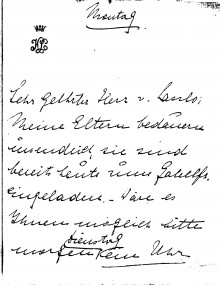 Montag
Sehr Geehrter Herr v.
Meine Eltern bedauern
unendlich, sie sind
bereits heute zum
eingeladen. – Wäre es
Ihnen möglich bitte
Dienstag
morgen Uhr